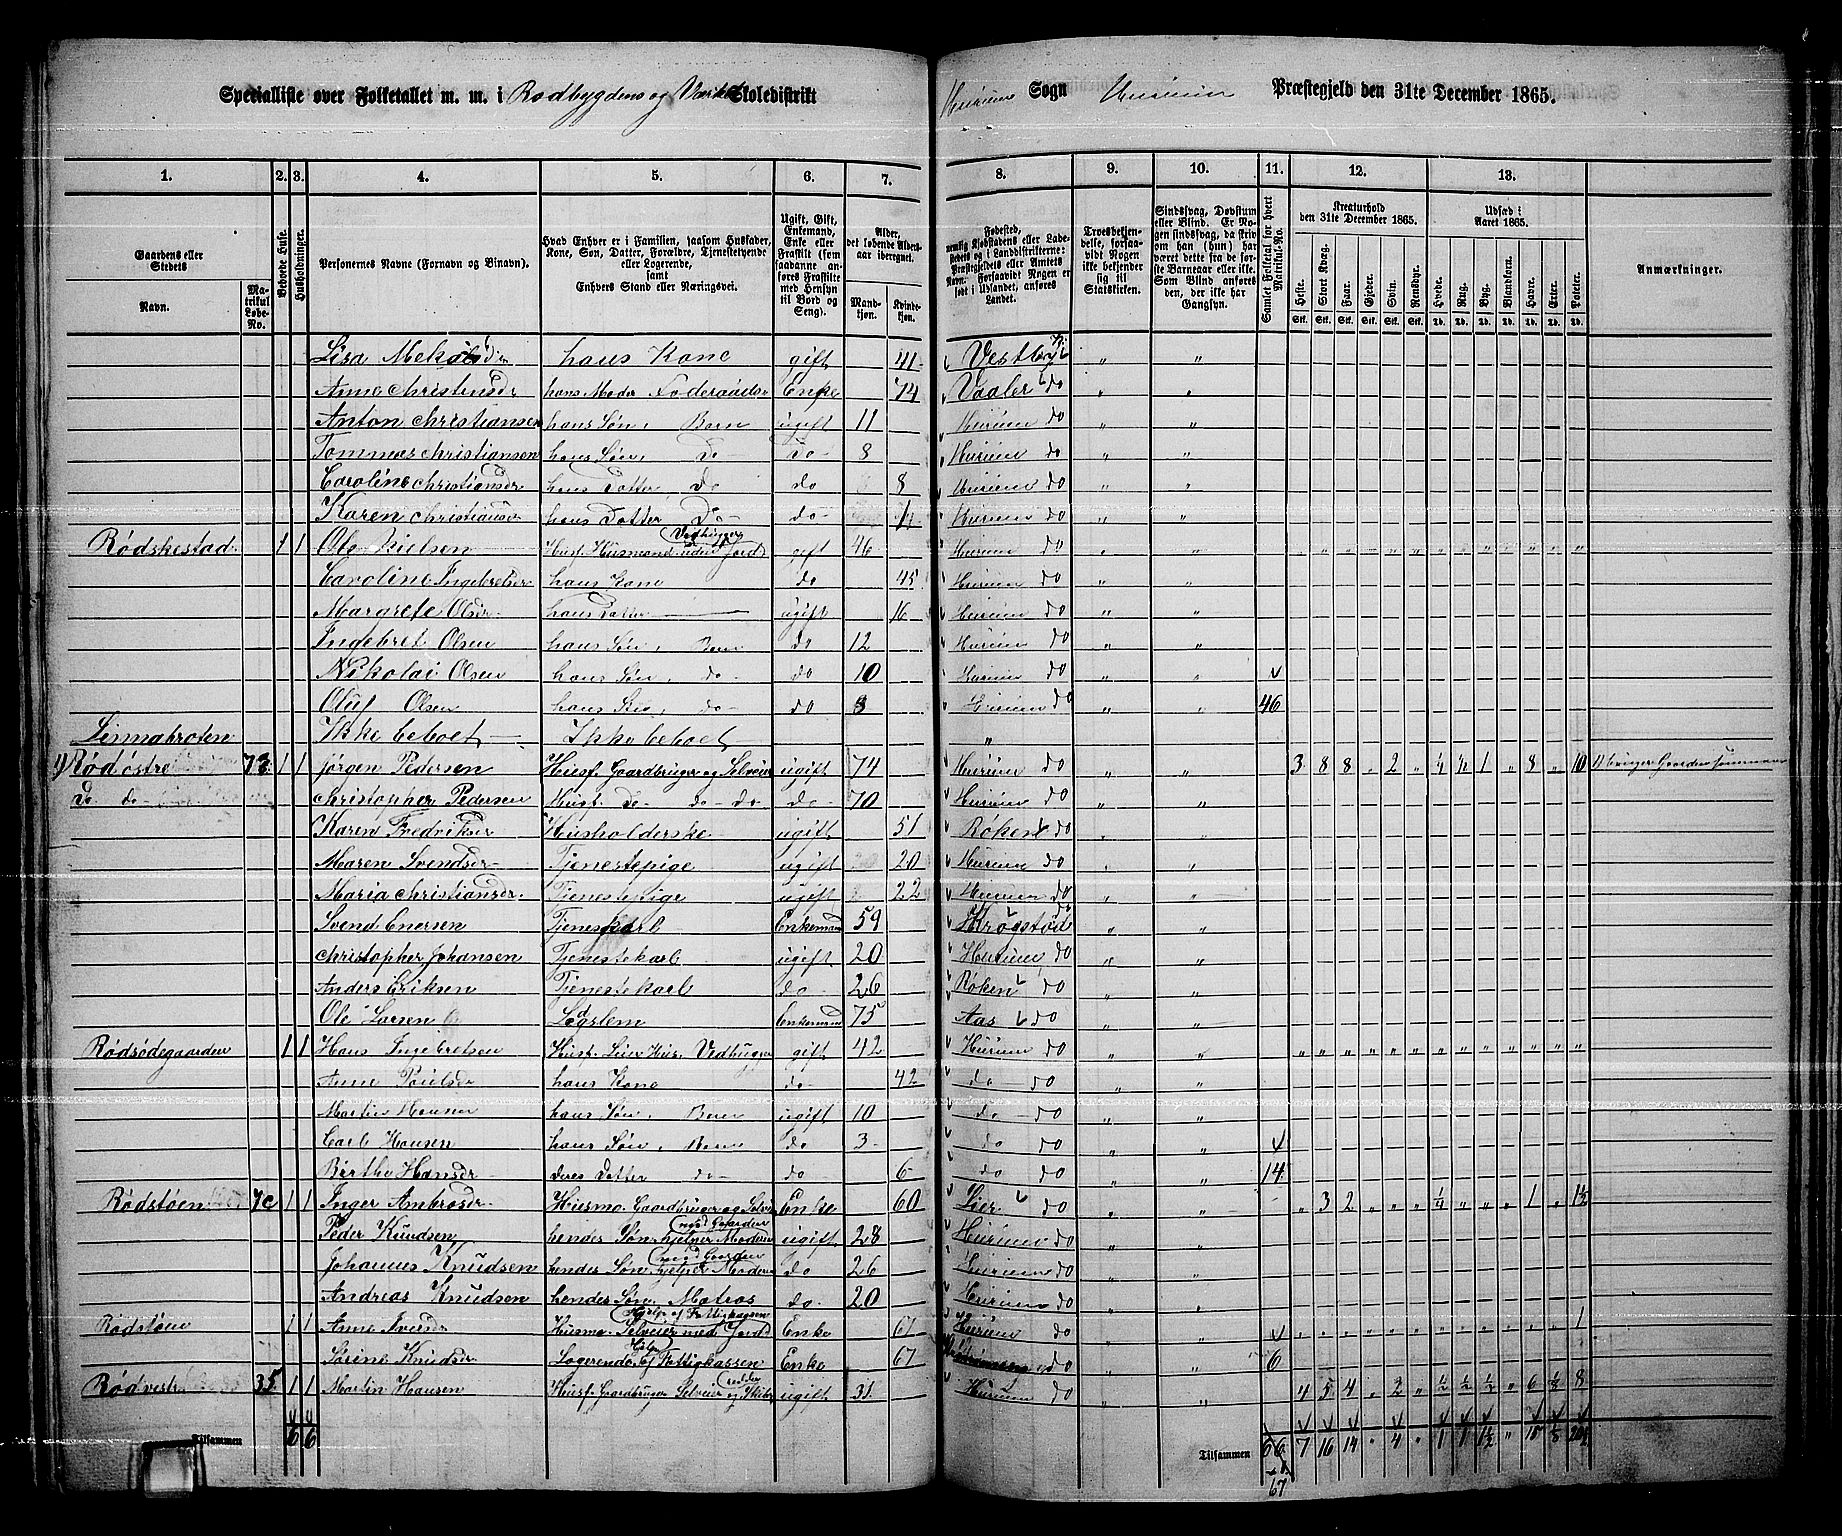 Specialliste over Folketallet m. m. i Rødbygdens og Skoledistrikt
Hurum Sogn Hurum Præstegjeld den 31te December 1865.
1. 2. 3. 4. 5. 6. 7. 8. 9. 10. 11. 12. 13.
Gaardens eller Stedets
Navn.
Matrikul Løbe-No.
Bebvede Huse.
Husholdninger.
Personernes Navne (Fornavn og Binavn).
Hvad Enhver er i Familien, saasom Husfader, Kone, Søn, Datter, Forældre, Tjenestetyende eller Logerende,
samt
Enhvers Stand eller Næringsvei.
Ugift, Gift, Enkemand, Enke eller Fraskilt (som saadanne anføres Fraskilte med Hensyn til Bord og Seng).
Alder, det løbende Aldersaar iberegnet.
Mandkjøn. Kvindekjøn.
Fødested,
nemlig Kjøbstadens eller Ladestedets og i Landdistrikterne: Præstegjeldets eller Amtets Navn. Forsaavidt Nogen er født i Udlandet, anføres Landet.
Troesbekjendelse, forsaavidt Nogen ikke bekjender sig til Statskirken.
Sindssvag, Døvstum eller Blind. Er Nogen sindssvag, da skriv om han (hun) har været dette fra de første Barneaar eller ikke. Som Blind anføres den, der ikke har Gangsyn.
Samlet Folketal for hvert Matrikul-No.
Kreaturhold den 31te December 1865.
Heste. Stort Kvæg. Faar. Gjeder. Svin. Rensdyr.
Udsæd i Aaret 1865.
Hvede. Rug. Byg. Blandkorn. Havre. Erter. Poteter.
Anmærkninger.
Lisa hans Kone gift 41 Vestby
Anne Christensdr hans Moder Føderaads Enke 74 Vaaler do
Anton Christiansen hans Søn, Barn ugift 11 Hurum do
Tommas Christiansen hans Søn, do do 8 Hurum do
Caroline Christiansdr hans Datter do do 8 Hurum do
Karen Christiansdr hans Datter do do Hurum do
Rødskestad 1 1 Ole Nielsen Husf. Husmand uden Jord Vedhugger gift 46 Hurum do
Caroline Ingebretsdr hans Kone do 45 Hurum do
Margrete Olsdr hans Datter ugift 16 Hurum do
Ingebret Olsen hans Søn, Barn do 12 Hurum do
Nikolai Olsen hans Søn, do do 10 Hurum do
Oluf Olsen hans Søn, do do 3 Hurum do 46
Linnabroten Ikke beboet Ikke beboet
1) Rød østre 73 1 1 Jørgen Pedersen Husf. Gaardbruger og Selveier ugift 74 Hurum do 3 8 8 2 1 8 10
do do Christopher Pedersen Husf. do do do do 70 Hurum do
Karen Fredriksdr Husholderske ugift 51 Røken do
Maren Svendsdr Tjenestepige ugift 20 Hurum do
Maria Christiansdr Tjenestepige ugift 22 Hurum do
Svend Enersen Tjenestkarl Enkemand 59 Krogstad do
Christopher Johansen Tjenestekarl ugift 20 Hurum do
Anders Eriksen Tjenestekarl do 26 Røken do
Ole Larsen Lægslem Enkemand 75 Aas do
Rødsødegaarden 1 1 Hans Ingebretsen Husf. Leier Hus. Vedhugger gift 42 Hurum do
Anne Paulsdr hans Kone do 42 do do
Martin Hansen hans Søn, Barn ugift 10 do do
Carl Hansen hans Søn, Barn do 3 do do
Birthe Hansdr deres Datter do do 6 do do 14
Rødstøen 1 1 Inger Ambrosdr Husmo. Gaardbruger og Selveier Enke 60 Lier do 3 2 1/4 1 1 1/2
Peder Knudsen hendes Søn hjelper Moderen med Gaarden ugift 28 Hurum do
Johannes Knudsen hendes Søn hjelper Moderen med Gaarden do 26 Hurum do
Andreas Knudsen hendes Søn, Matros do 20 Hurum do
Rødstøen 1 1 Anne Iversdr Husmo. Selveier med Jord Hjelp af Fattigkassen Enke 61 Hurum do 1
Sørine Knudsdr Logerende Hjelp af Fattigkassen Enke 67 do 6
Rødvestre 35 1 1 Martin Hansen Husf. Gaardbruger Selveier ugift 31 Hurum do 4 5 4 2 1/2 1/2 1/2 6 1/8 8
Tilsammen 6 6
Tilsammen 66 7 16 14 4 1 1 15
67